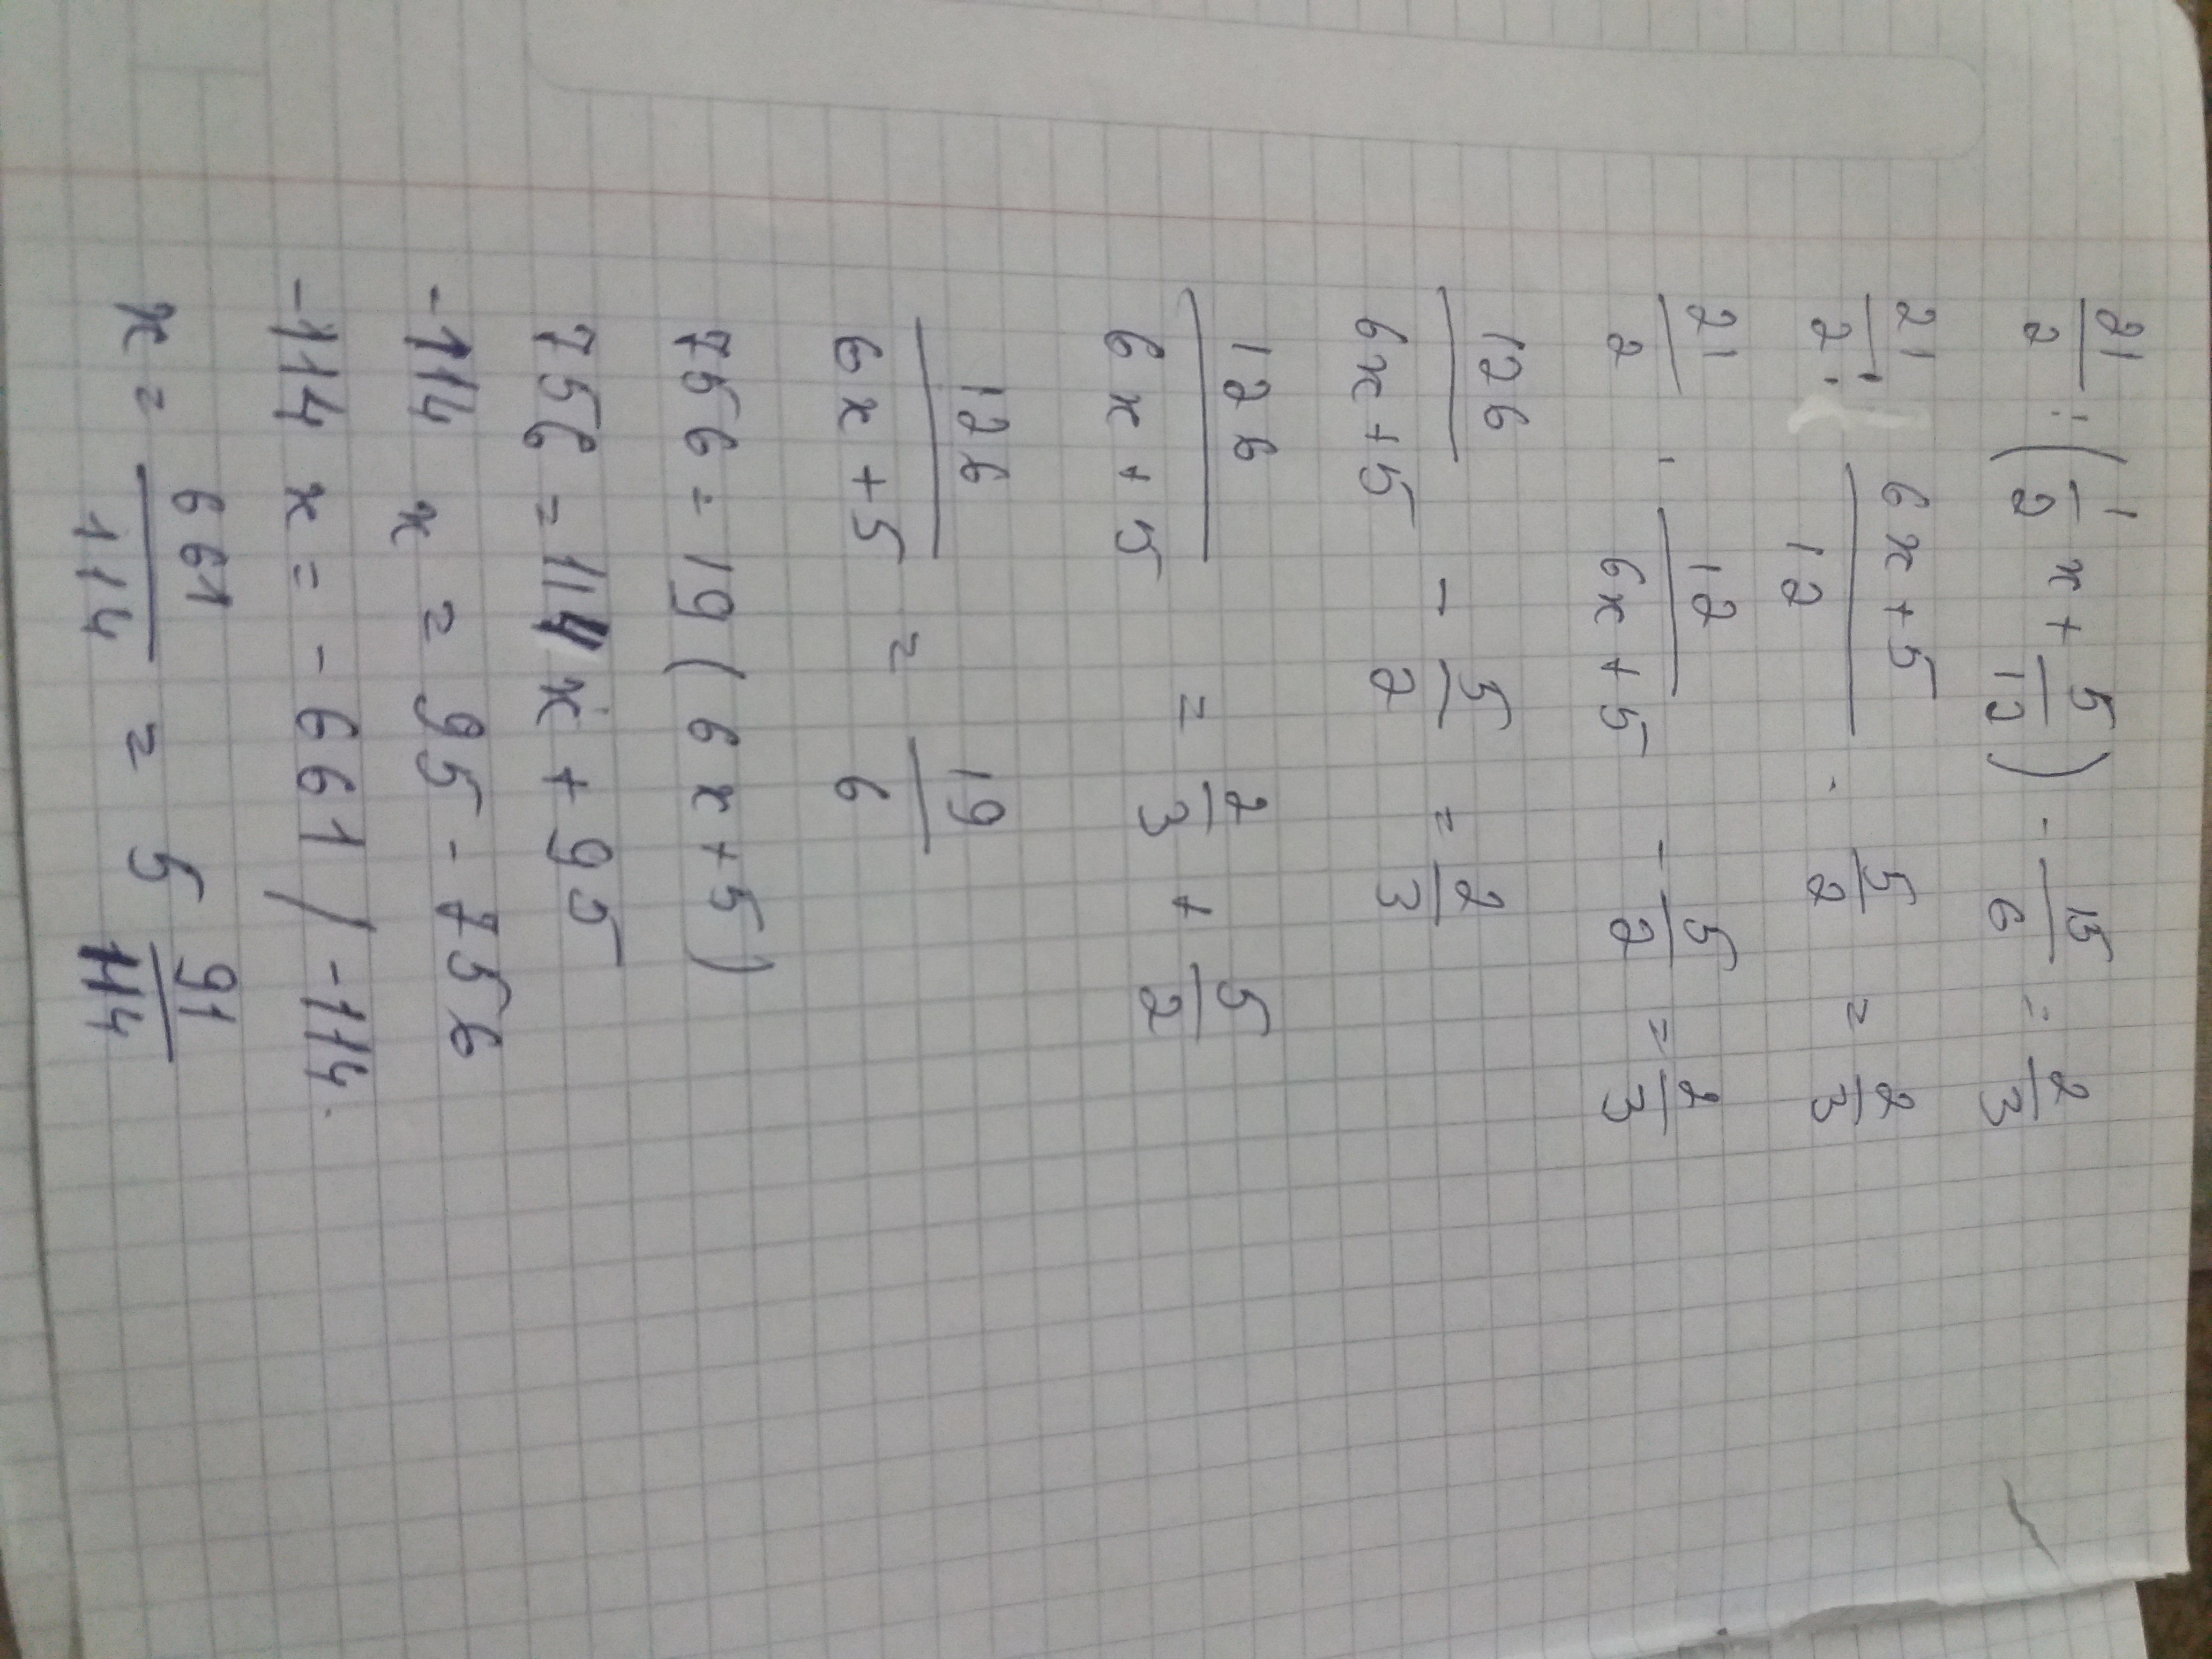 21/2 : (1/2 x + 5/12) - 15/6 = 2/3
21/2 : 6x+5/12 - 5/2 = 2/3
21/2 · 12/6x+5 - 5/2 = 2/3
126/6x+5 - 5/2 = 2/3
126/6x+5 = 2/3 + 5/2
126/6x+5 = 19/6
756 = 19(6x+5)
756 = 114x + 95
-114x = 95 - 756
-114x = -661 / -114.
x = 661/114 = 5 91/114